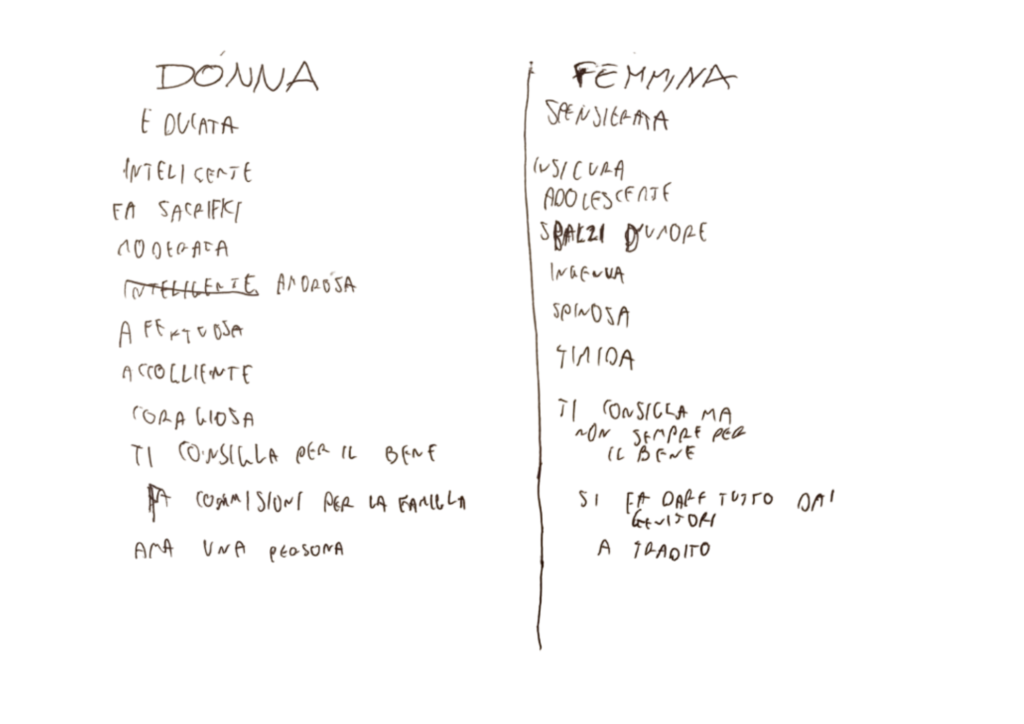 DONNA
EDUCATA
INTELIGENTE
FA SACRIFICI
MODERATA
INTELIGENTE AMOROSA
AFFETUOSA
ACCOGLIENTE
CORAGIOSA
TI CONSIGLA PER IL BENE
FA COMMISIONI PER LA FAMIGLA
AMA UNA PERSONA
FEMMINA
SPENSIERATA
INSICURA
ADOLESCENTE
SBALZI D'UMORE
INGENUA
SPINOSA
TIMIDA
TI CONSIGLA MA
NON SEMPRE PER
IL BENE
SI FA DARE TUTTO DAI
GENITORI
A TRADITO